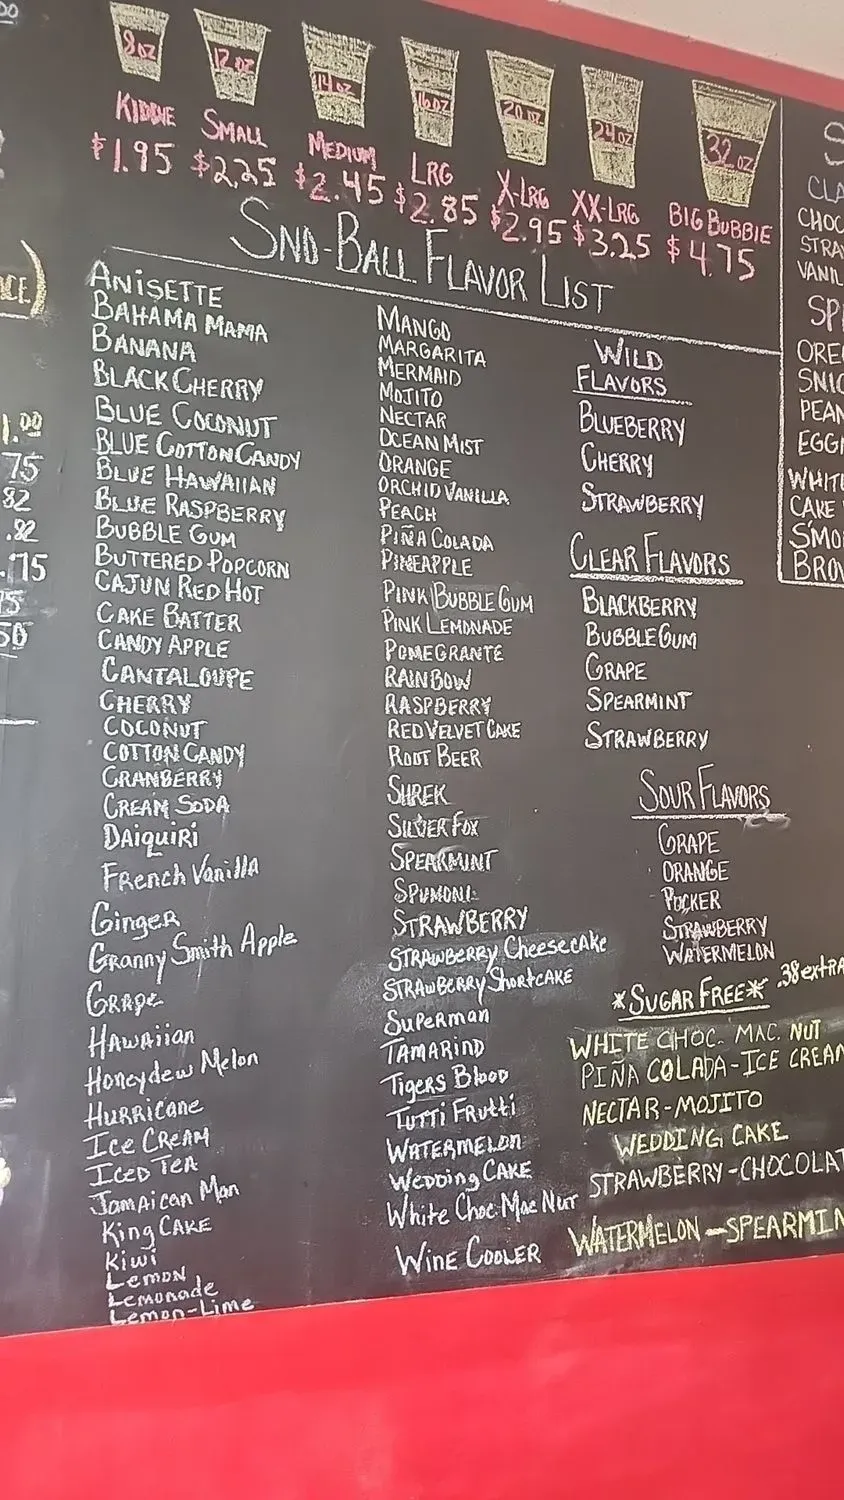 8oz
12oz
14oz
16oz
20oz
24oz
32oz
KIDDIE
SMALL
MEDIUM
LRG
X-LRG
XX-LRG
BIG BUBBIE
$1.95
$2.25
$2.45
$2.85
$2.95
$3.25
$4.75
SNO-BALL FLAVOR LIST
ANISETTE
BAHAMA MAMA
BANANA
BLACK CHERRY
BLUE COCONUT
BLUE COTTON CANDY
BLUE HAWAIIAN
BLUE RASPBERRY
BUBBLE GUM
BUTTERED POPCORN
CAJUN RED HOT
CAKE BATTER
CANDY APPLE
CANTALOUPE
CHERRY
COCONUT
COTTON CANDY
CRANBERRY
CREAM SODA
DAIQUIRI
French Vanilla
Ginger
Granny Smith Apple
GRAPE
HAWAIIAN
Honeydew Melon
HURRICANE
ICE CREAM
ICED TEA
JAMAICAN MAN
King CAKE
Kiwi
LEMON
LEMONADE
LEMON-LIME
MANGO
MARGARITA
MERMAID
MOJITO
NECTAR
OCEAN MIST
ORANGE
ORCHID VANILLA
PEACH
PIÑA COLADA
PINEAPPLE
PINK BUBBLE GUM
PINK LEMONADE
POMEGRANTE
RAINBOW
RASPBERRY
RED VELVET CAKE
ROOT BEER
SHREK
SILVER FOX
SPEARMINT
SPUMONI
STRAWBERRY
STRAWBERRY CheeseCAKE
STRAWBERRY ShortCAKE
SUPERMAN
TAMARIND
Tigers Blood
TUTTI FRUTTI
WATERMELON
WEDDING CAKE
White Choc Mac Nut
WINE COOLER
WILD
FLAVORS
BLUEBERRY
CHERRY
STRAWBERRY
CLEAR FLAVORS
BLACKBERRY
BUBBLEGUM
GRAPE
SPEARMINT
STRAWBERRY
SOUR FLAVORS
GRAPE
ORANGE
PUCKER
STRAWBERRY
WATERMELON
*SUGAR FREE* .38 extra
WHITE CHOC. MAC. NUT
PIÑA COLADA-ICE CREAM
NECTAR-MOJITO
WEDDING CAKE
STRAWBERRY-CHOCOLAT
WATERMELON-SPEARMIN